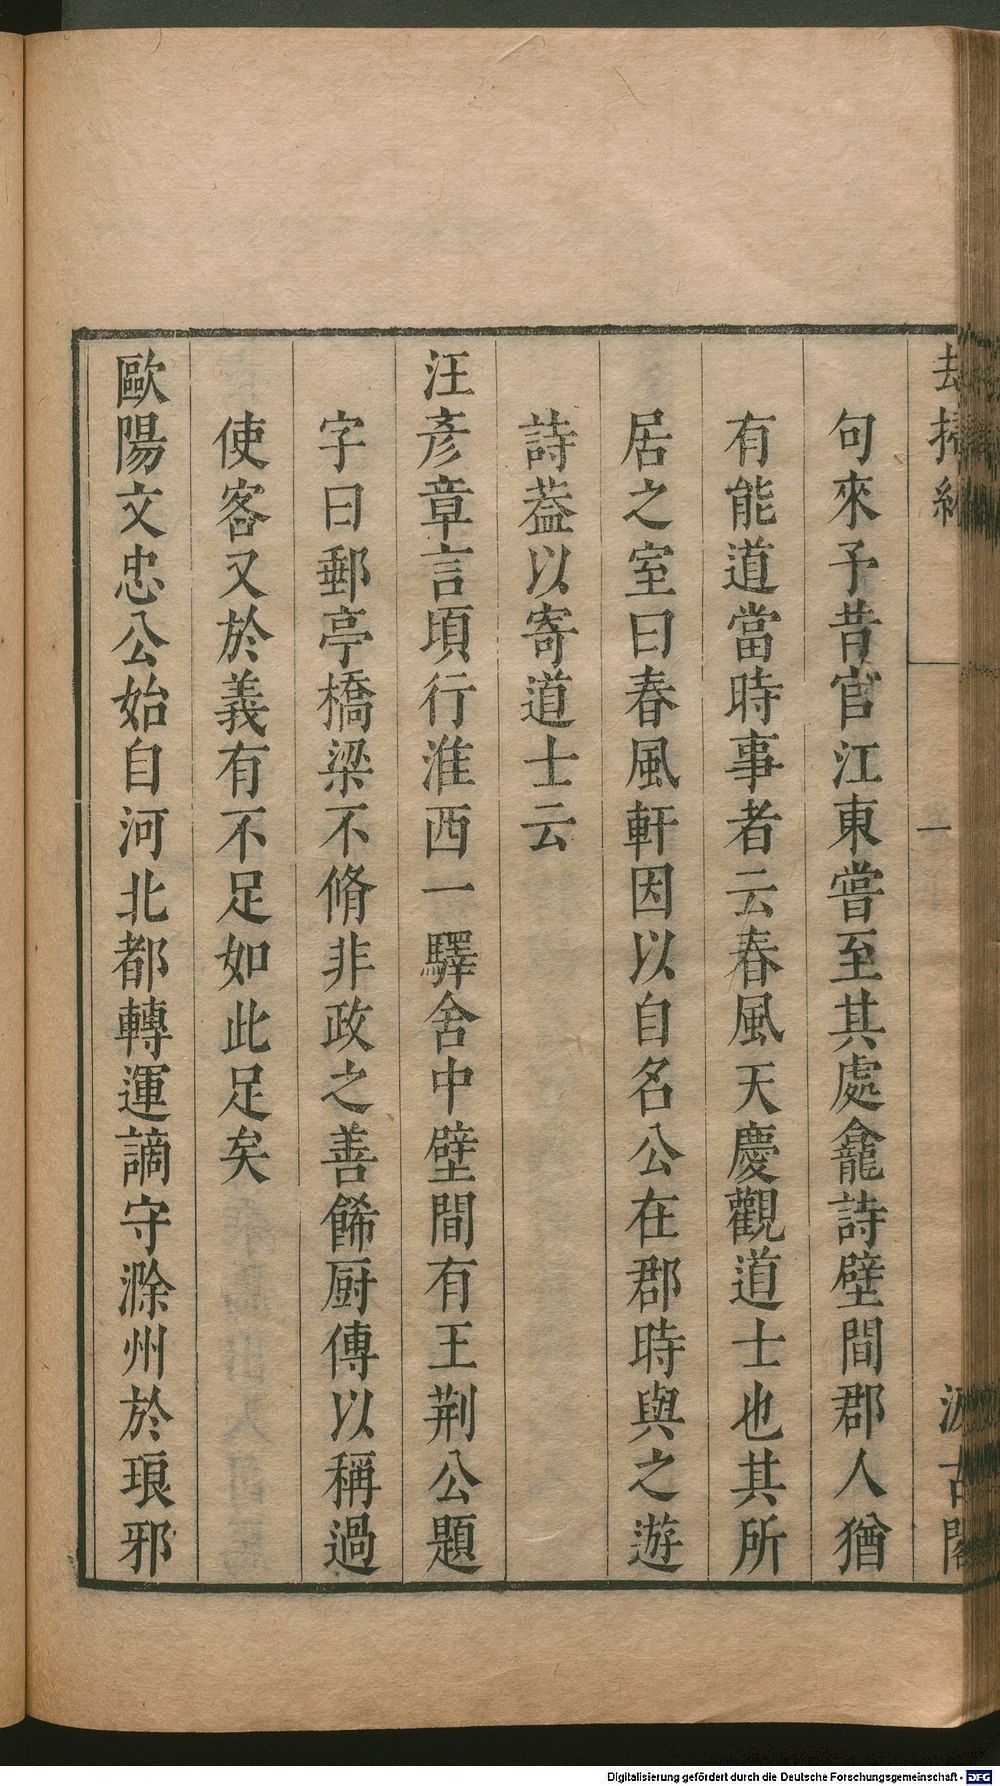 去掃編
一
汲古閣
句來予昔官江東嘗至其處龕詩壁間郡人猶
有能道當時事者云春風天慶觀道士也其所
居之室曰春風軒因以自名公在郡時與之遊
詩葢以寄道士云
汪彥章言頃行淮西一驛舍中壁間有王荆公題
字曰郵亭橋梁不脩非政之善餙厨傳以稱過
使客又於義有不足如此足矣
歐陽文忠公始自河北都轉運謫守滁州於琅邪
Digitalisierung gefördert durch die Deutsche Forschungsgemeinschaft - DFG